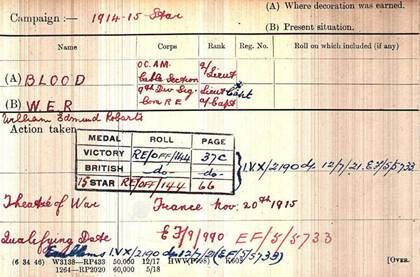 Campaign :— 1914-15 Star
(A) Where decoration was earned.
(B) Present situation.
Name Corps Rank Reg. No. Roll on which included (if any)
(A) BLOOD O.C. A.M. Cable Section 2/Lieut
(B) W.E.R 9th Div Sig Lieut Capt
Con. R E a/Capt
William Edmund Robarts
Action taken
MEDAL ROLL PAGE
VICTORY RE/OFF/144 37C
BRITISH -do- -do-
15 STAR RE/OFF/144 66
I.V.X/2190 d/ 12/7/21. EF/5/5733
Theatre of War France Nov. 20th 1915
Qualifying Date EF/9/990 EF/5/5733
Emblems I.V.X/2190 d/ 12/7/21 (EF/5/5733)
(6 34 46) W3138—RP433 50,000 12/17 HWV(P998) K608
1264—RP2020 60,000 5/18
[OVER.